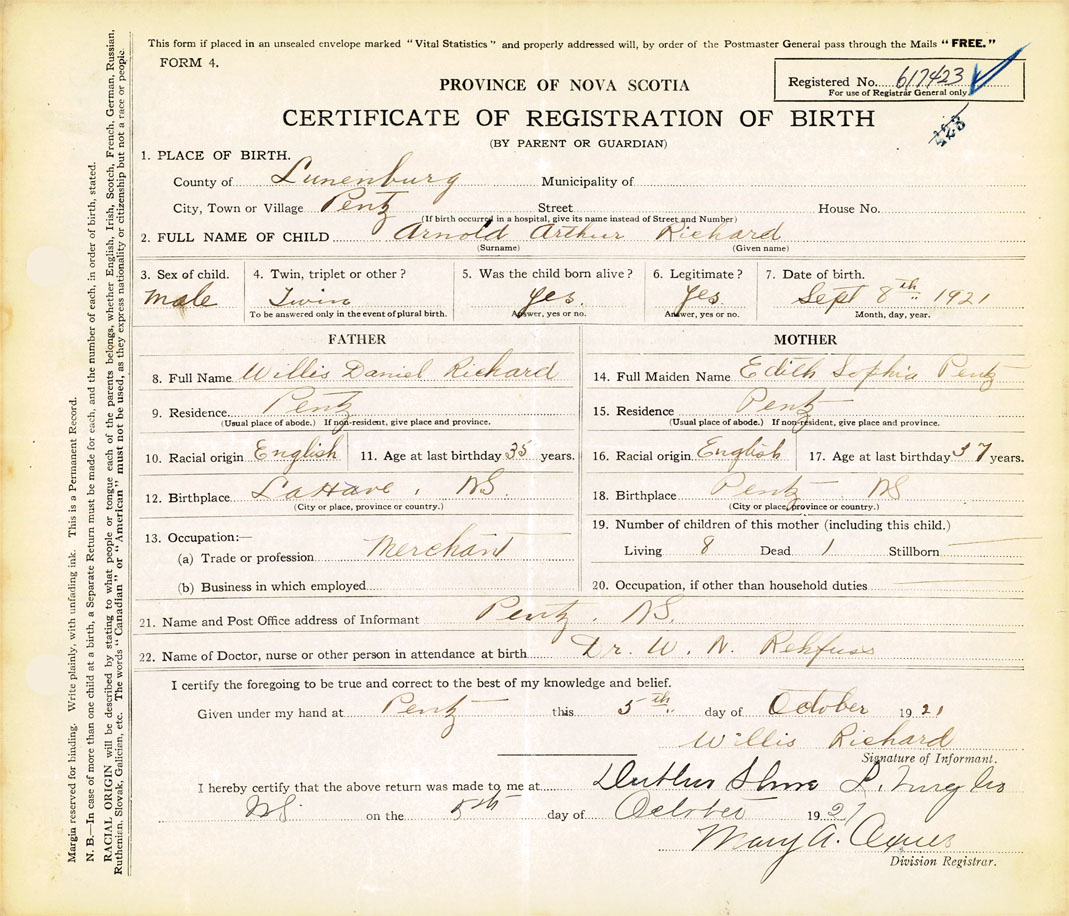 This form if placed in an unsealed envelope marked "Vital Statistics" and properly addressed will, by order of the Postmaster General pass through the Mails "FREE."
FORM 4.
PROVINCE OF NOVA SCOTIA
Registered No. 617423
For use of Registrar General only.
CERTIFICATE OF REGISTRATION OF BIRTH
(BY PARENT OR GUARDIAN)
423
1. PLACE OF BIRTH.
County of Lunenburg Municipality of
City, Town or Village Pentz Street House No.
(If birth occurred in a hospital, give its name instead of Street and Number)
2. FULL NAME OF CHILD Arnold Arthur Richard
(Surname) (Given name)
3. Sex of child. 4. Twin, triplet or other? 5. Was the child born alive? 6. Legitimate? 7. Date of birth.
male Twin yes. yes. Sept 8th 1921
To be answered only in the event of plural birth. Answer, yes or no. Answer, yes or no. Month, day, year.
FATHER
8. Full Name Willis Daniel Richard
9. Residence. Pentz
(Usual place of abode.) If non-resident, give place and province.
10. Racial origin English 11. Age at last birthday 35 years.
12. Birthplace LaHave, NS.
(City or place, province or country.)
13. Occupation:—
(a) Trade or profession Merchant
(b) Business in which employed
MOTHER
14. Full Maiden Name Edith Sophia Pentz
15. Residence Pentz
(Usual place of abode.) If non-resident, give place and province.
16. Racial origin English 17. Age at last birthday 37 years.
18. Birthplace Pentz NS
(City or place, province or country.)
19. Number of children of this mother (including this child.)
Living 8 Dead 1 Stillborn
20. Occupation, if other than household duties
21. Name and Post Office address of Informant Pentz. NS.
22. Name of Doctor, nurse or other person in attendance at birth Dr. W. N. Rehfuss
I certify the foregoing to be true and correct to the best of my knowledge and belief.
Given under my hand at Pentz this 5th day of October 1921
Willis Richard
Signature of Informant.
I hereby certify that the above return was made to me at
NS on the 5th day of October 1921
Mary A.
Division Registrar.
Margin reserved for binding. Write plainly, with unfading ink. This is a Permanent Record.
N. B.—In case of more than one child at a birth, a Separate Return must be made for each, and the number of each, in order of birth, stated.
RACIAL ORIGIN will be described by stating to what people or tongue each of the parents belongs, whether English, Irish, Scotch, French, German, Russian,
Ruthenian, Slovak, Galician, etc. The words "Canadian" or "American" must not be used, as they express nationality or citizenship but not a race or people.